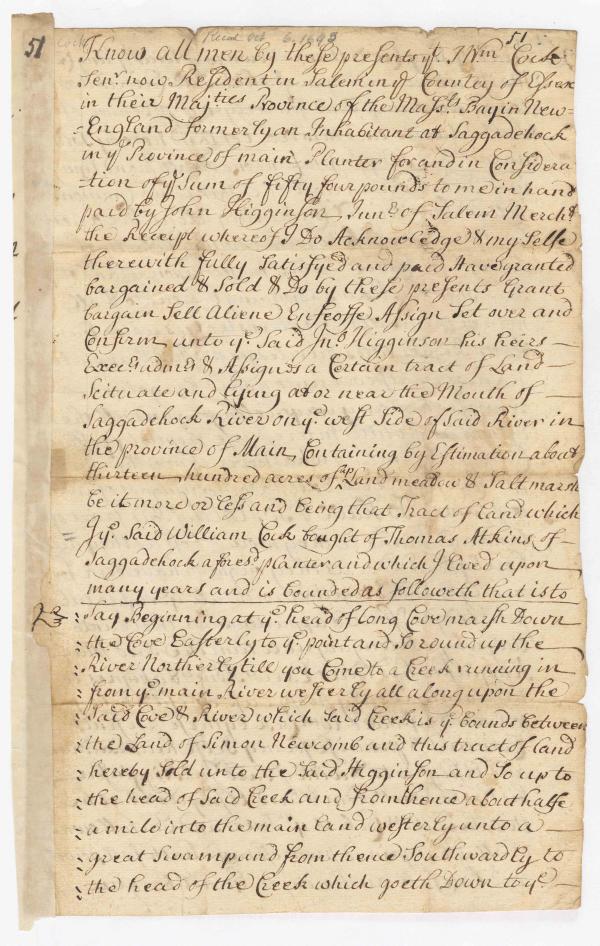 51
Record Oct 6, 1693
51
Know all men by these presents yt. I Wm Cock
Senr. now Resident in Salem in ye County of Essex
in their Majties Province of the Massts Bay in New=
=England formerly an Inhabitant at Saggadehock
in ye Province of main Planter for and in Considera
=tion of ye Sum of fifty four pounds to me in hand
paid by John Higginson Junr. of Salem Mercht
the Receipt whereof I Do Acknowledge & my Selfe
therewith fully Satisfyed and paid Have granted
bargained & Sold & Do by these presents Grant
bargain Sell Aliene Enfeoffe Assign Set over and
Confirm unto ye. Said Jno. Higginson his heirs —
Execrs admrs & Assignes a Certain tract of Land —
Scituate and lying at or near the Mouth of —
Saggadehock River on ye. west Side of Said River in
the province of Main, Containing by Estimation about
thirteen hundred acres of upLand meadow & Salt marsh
be it more or less and being that Tract of land which
I ye. Said William Cock bought of Thomas Atkins of —
Saggadehock aforesd. planter and which I lived upon
many years and is bounded as followeth that is to
Say Beginning at ye. head of long Cove marsh Down
the Cove Easterly to ye. point and So round up the
River Northerly till you Come to a Creek running in
from ye. main River westerly all along upon the
Said Cove & River which Said Creek is ye. bounds between
the Land of Simon Newcomb and this tract of land
hereby Sold unto the Said Higginson and So up to
the head of Said Creek and from thence about halfe
a mile into the main land westerly unto a —
great Swamp and from thence Southwardly to
the head of the Creek which goeth Down to ye. —